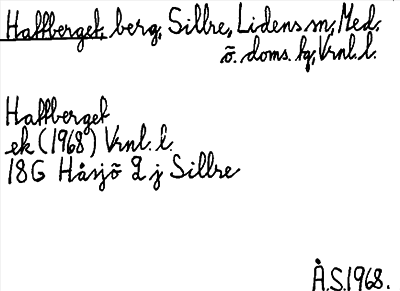 Haffberget, berg, Sillre, Lidens sn, Med.
ö. doms. hg, Vrnl. l.
Haffberget
ek (1968) Vrnl. l.
18G Håsjö 2 j Sillre
Å.S. 1968.